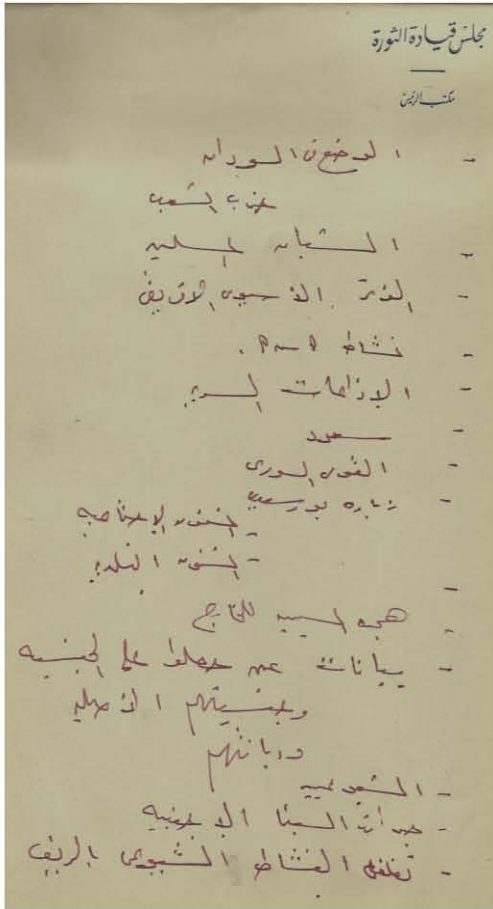 مجلس قيادة الثورة
مكتب الرئيس
- الوضع في السودان
حزب الشعب
- الشبان المسلمين
- المؤتمر الآسيوى الافريقى
- نشاط
- الإذاعات السرية
- سعود
- القومى السورى
- زيارة بورسعيد
- الشئون الاجتماعية
- الشئون البلدية
-
- هجرة المسيحيين للخارج
- بيانات عن حصلوا على الجنسيه
وجنسيتهم الأصلية
وديانتهم
- الشيوعيين
- الاجنبيه
- تغلغل النشاط الشيوعى بالريف